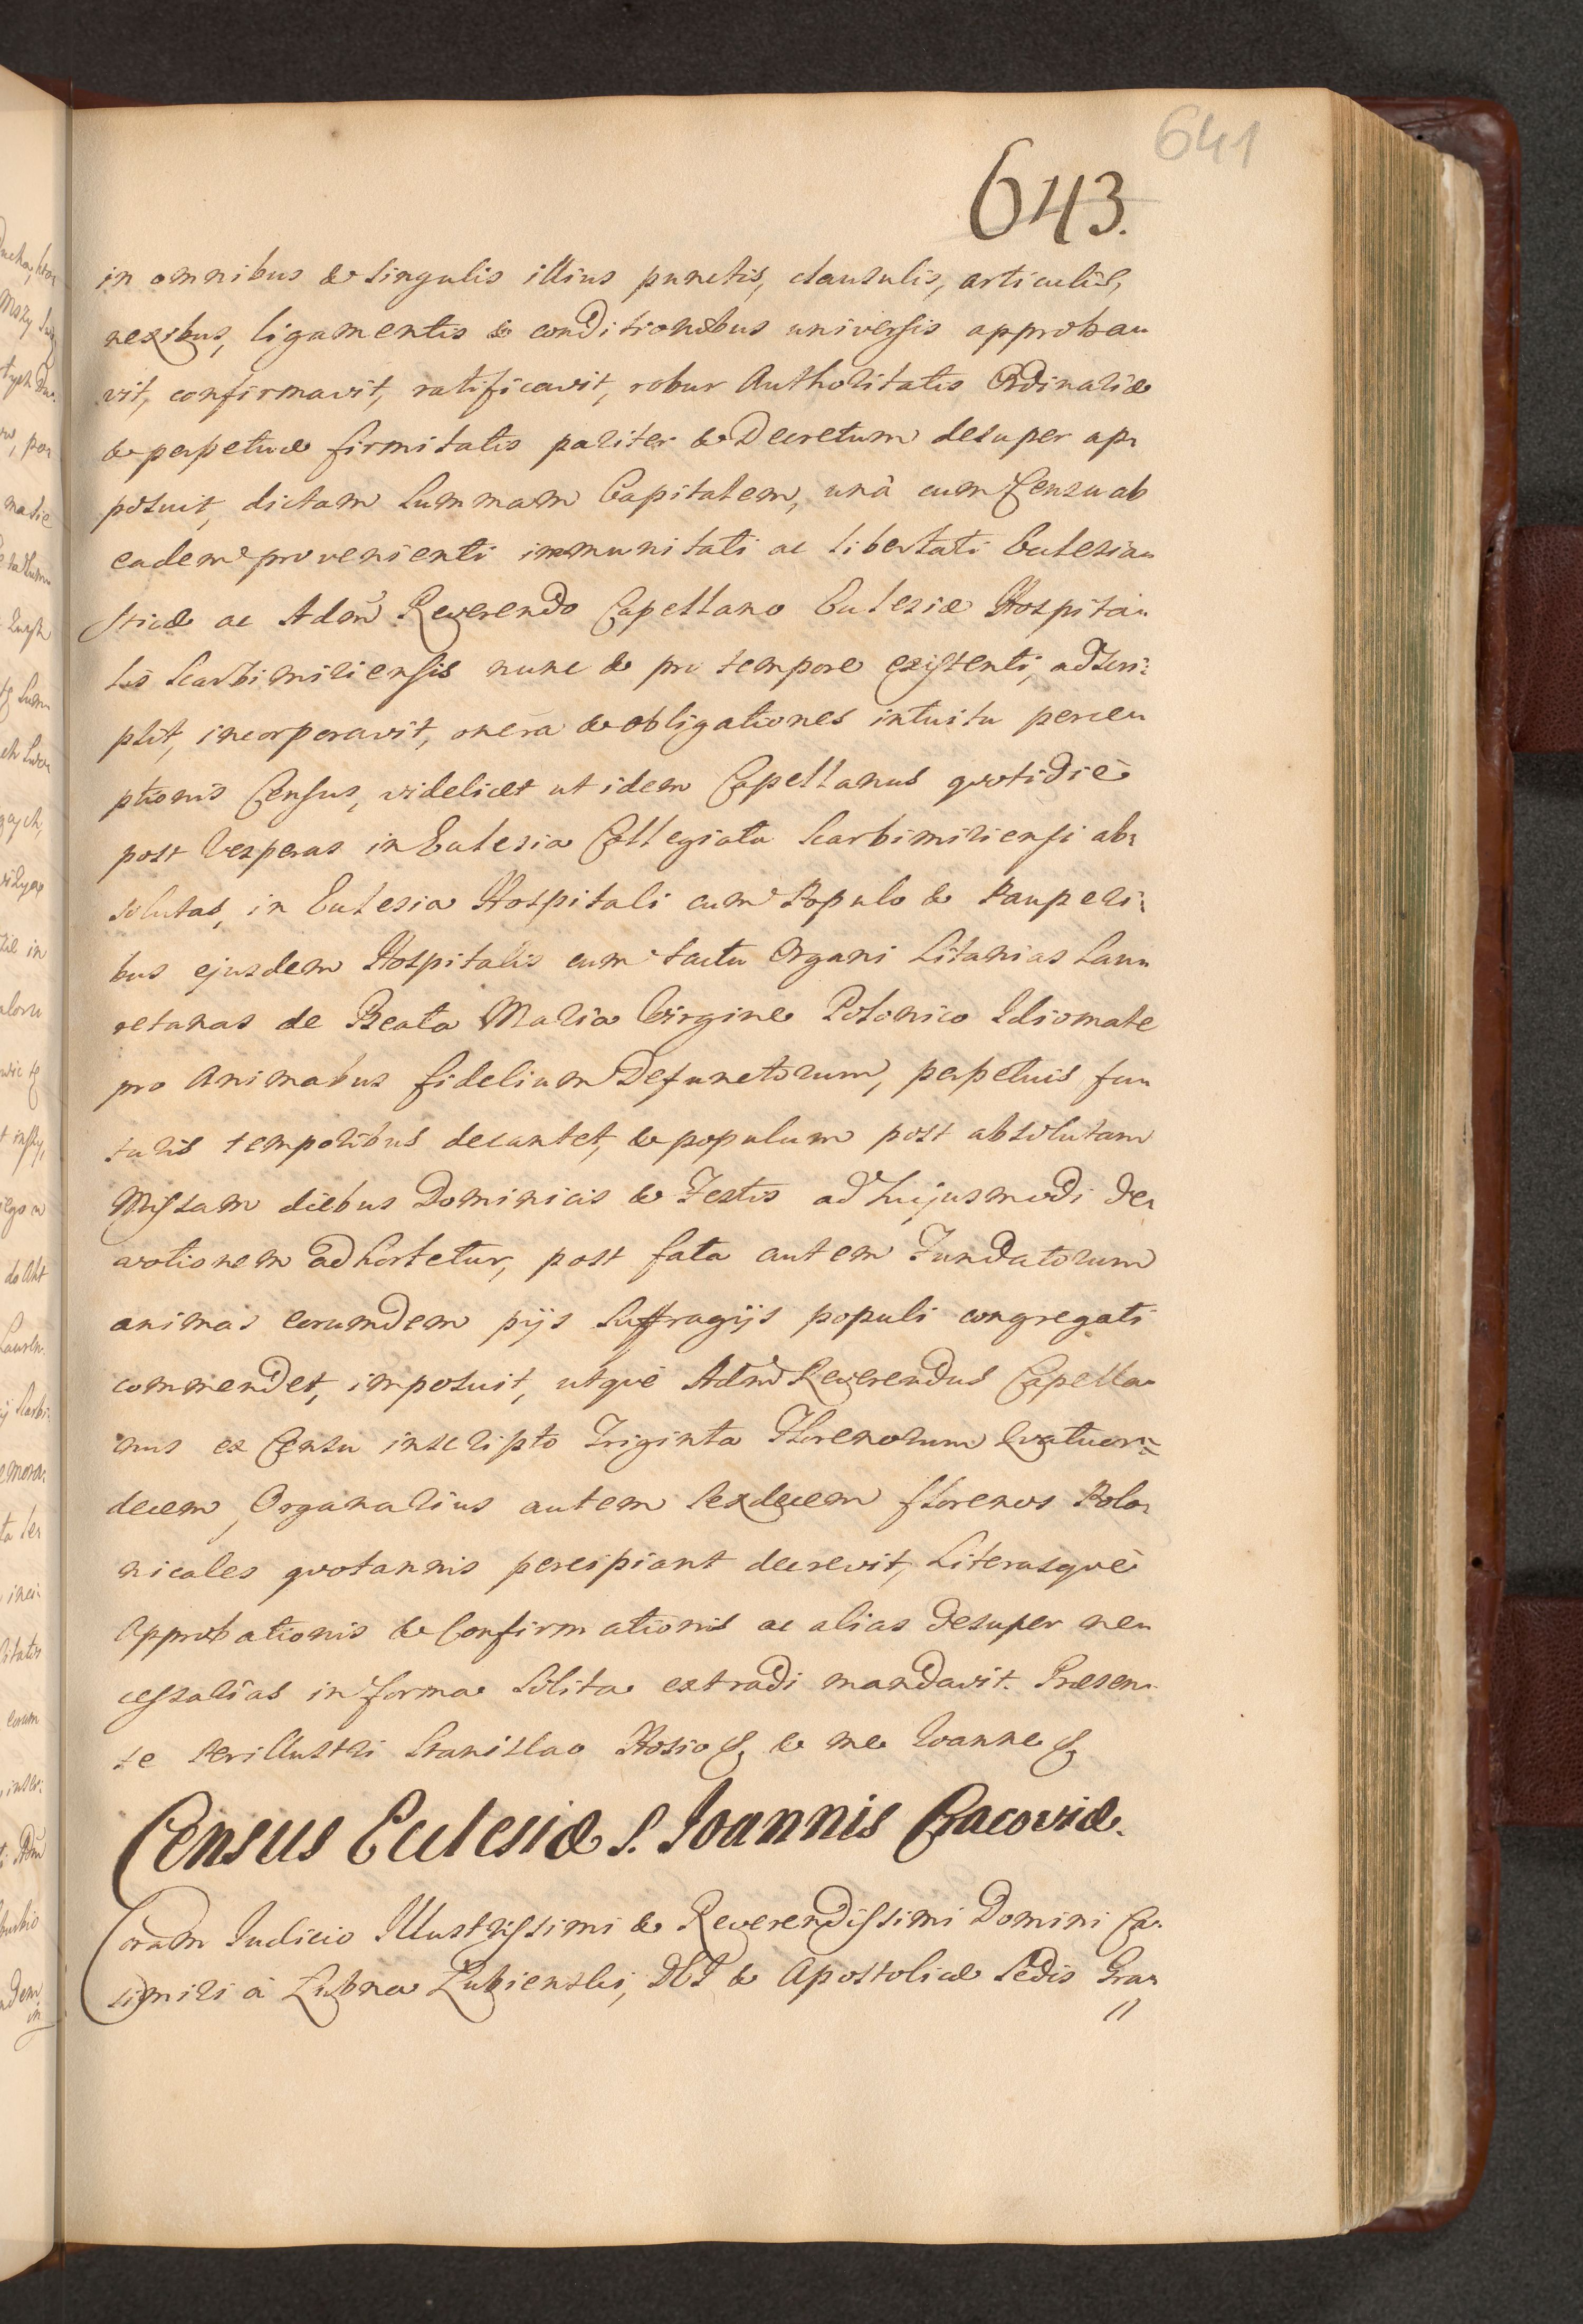 641
643.
in omnibus & singulis illius punctis, clausulis, articulis,
nexibus, ligamentis & conditionibus universis approba=
vit, confirmavit, ratificavit, robur Authoritatis Ordinariæ
& perpetuæ firmitatis pariter & Decretum desuper ap=
posuit, dictam Summam Capitalem, unà cum Censu ab
eadem provenienti immunitati ac libertati Ecclesia=
sticæ ac Adm̃ Reverendo Capellano Ecclesiæ Hospita=
lis Scarbimiriensis nunc & pro tempore existenti, adscri=
psit, incorporavit, onera & obligationes intuitu perce=
ptionis Census, videlicet ut idem Capellanus quotidiè
post Vesperas in Ecclesia Collegiata Scarbimiriensi ab=
solutas, in Ecclesia Hospitali cum Populo & Pauperi=
bus ejusdem Hospitalis cum tactu Organi Litanias Lau=
retanas de Beata Maria Virgine Polonico Idiomate
pro Animabus fidelium Defunctorum, perpetuis fu=
turis temporibus decantet, & populum post absolutam
Missam diebus Dominicis & Festis ad hujusmodi de=
votionem adhortetur, post fata autem Fundatorum
animas eorumdem pijs Suffragijs populi congregati
commendet, imposuit, utquè Adm̃ Reverendus Capella=
nus ex Censu inscripto Triginta Florenorum Quatuor=
decem, Organarius autem Sexdecem florenos Polo=
nicales quotannis percipiant decrevit, Literasquè
Approbationis & Confirmationis ac alias desuper ne=
cessarias in forma Solita extradi mandavit. Præsen=
te Perillustri Stanislao Hosio & & me Joanne &
Census Ecclesiæ S. Joannis Cracoviæ.
Coram Judicio Illustrissimi & Reverendissimi Domini Ca=
simiri à Lubna Lubienski, D G & Apostolicæ Sedis Gra=